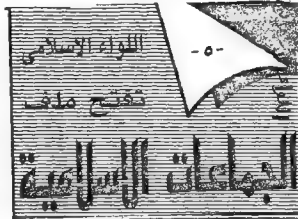 اللواء الاسلامى
-٥-
تفتح ملف
الجماعات الإسلامية